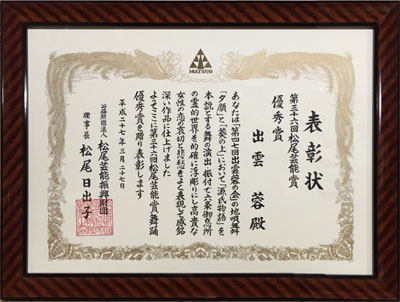 MATSUO
表彰状
第三十六回松尾芸能賞
優秀賞
出雲 蓉 殿
あなたは「第四七回出雲蓉の会」の地唄舞
「夕顔」と「葵の上」において『源氏物語』を
本説とする舞の演出・振付で六条御息所
の霊的世界を的確に浮彫りにし高貴な
女性の恋の哀切と悲をよく表現して感銘
深い作品に仕上げました
よってここに第三十六回松尾芸能賞舞踊
優秀賞を贈り表彰します
平成二十七年三月二十七日
公益財団法人 松尾芸能振興財団
理事長 松尾日出子